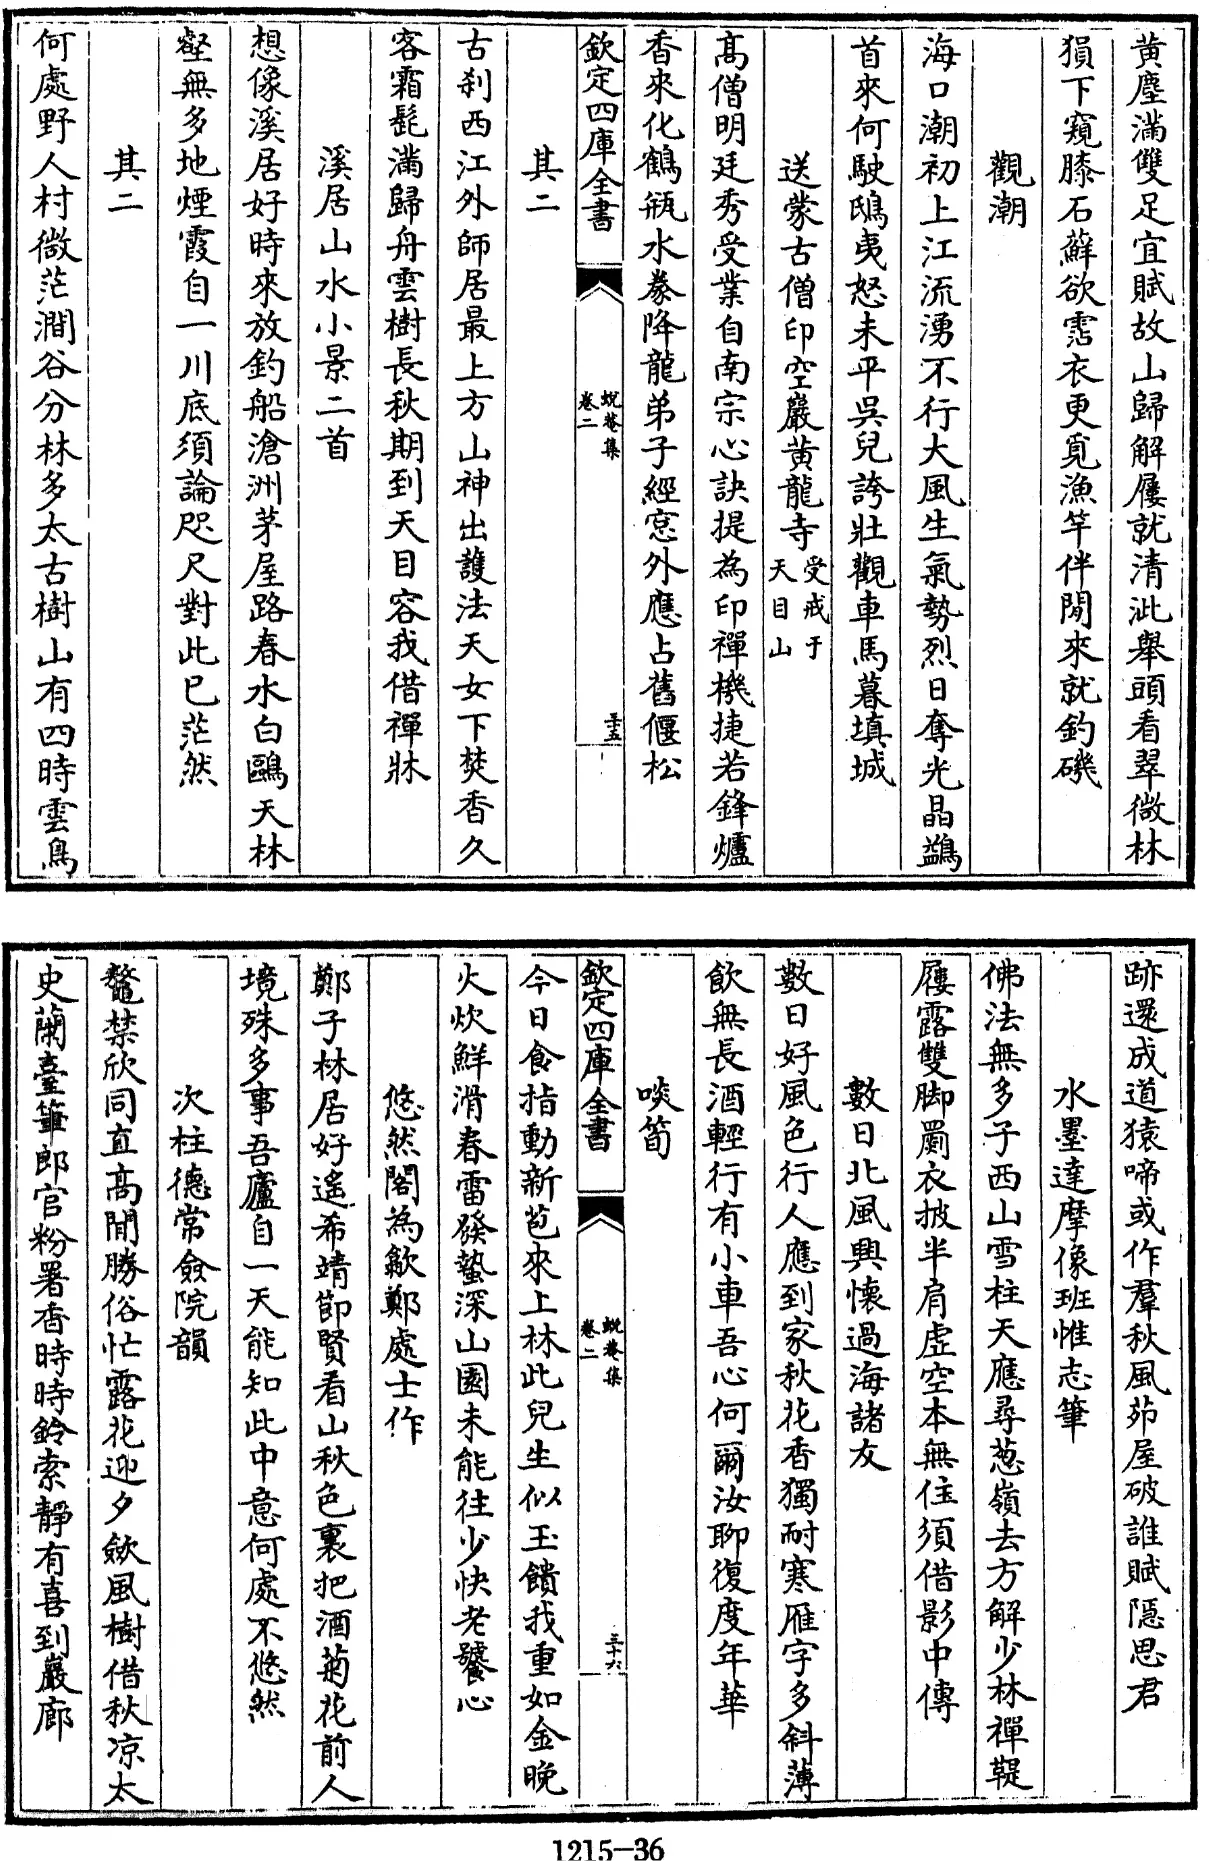 黄塵滿雙足宜賦故山歸解屨就清泚舉頭看翠微林
猿下窺膝石蘚欲霑衣更覓漁竿伴閒來就釣磯
觀潮
海口潮初上江流湧不行大風生氣勢烈日奪光晶鷁
首來何駛鴟夷怒未平吳兒誇壯觀車馬暮填城
送蒙古僧印空巖黄龍寺受戒于
天目山
髙僧明廷秀受業自南宗心訣提為印禪機捷若鋒爐
香來化鶴瓶水豢降龍弟子經窓外應占舊偃松
欽定四庫全書
蛻菴集
卷二
三十五
其二
古刹西江外師居最上方山神出護法天女下焚香久
客霜髭滿歸舟雲樹長秋期到天目容我借禪牀
溪居山水小景二首
想像溪居好時來放釣船滄洲茅屋路春水白鷗天林
壑無多地煙霞自一川底須論咫尺對此已茫然
其二
何處野人村微茫澗谷分林多太古樹山有四時雲鳥
跡還成道猿啼或作羣秋風茆屋破誰賦隠思君
水墨達摩像班惟志筆
佛法無多子西山雪柱天應尋葱嶺去方解少林禪鞮
屨露雙脚罽衣披半肩虚空本無住須借影中傳
數日北風興懷過海諸友
數日好風色行人應到家秋花香獨耐寒雁字多斜薄
飲無長酒輕行有小車吾心何爾汝聊復度年華
啖筍
欽定四庫全書
蛻菴集
卷二
三十六
今日食指動新苞來上林此兒生似玉饋我重如金晚
火炊鮮滑春雷發蟄深山園未能往少快老饕心
悠然閣為歙鄭處士作
鄭子林居好遥希靖節賢看山秋色裏把酒菊花前人
境殊多事吾廬自一天能知此中意何處不悠然
次柱德常僉院韻
鼇禁欣同直髙閒勝俗忙露花迎夕斂風樹借秋凉太
史蘭臺筆郎官粉署香時時鈴索靜有喜到巖廊
1215-36